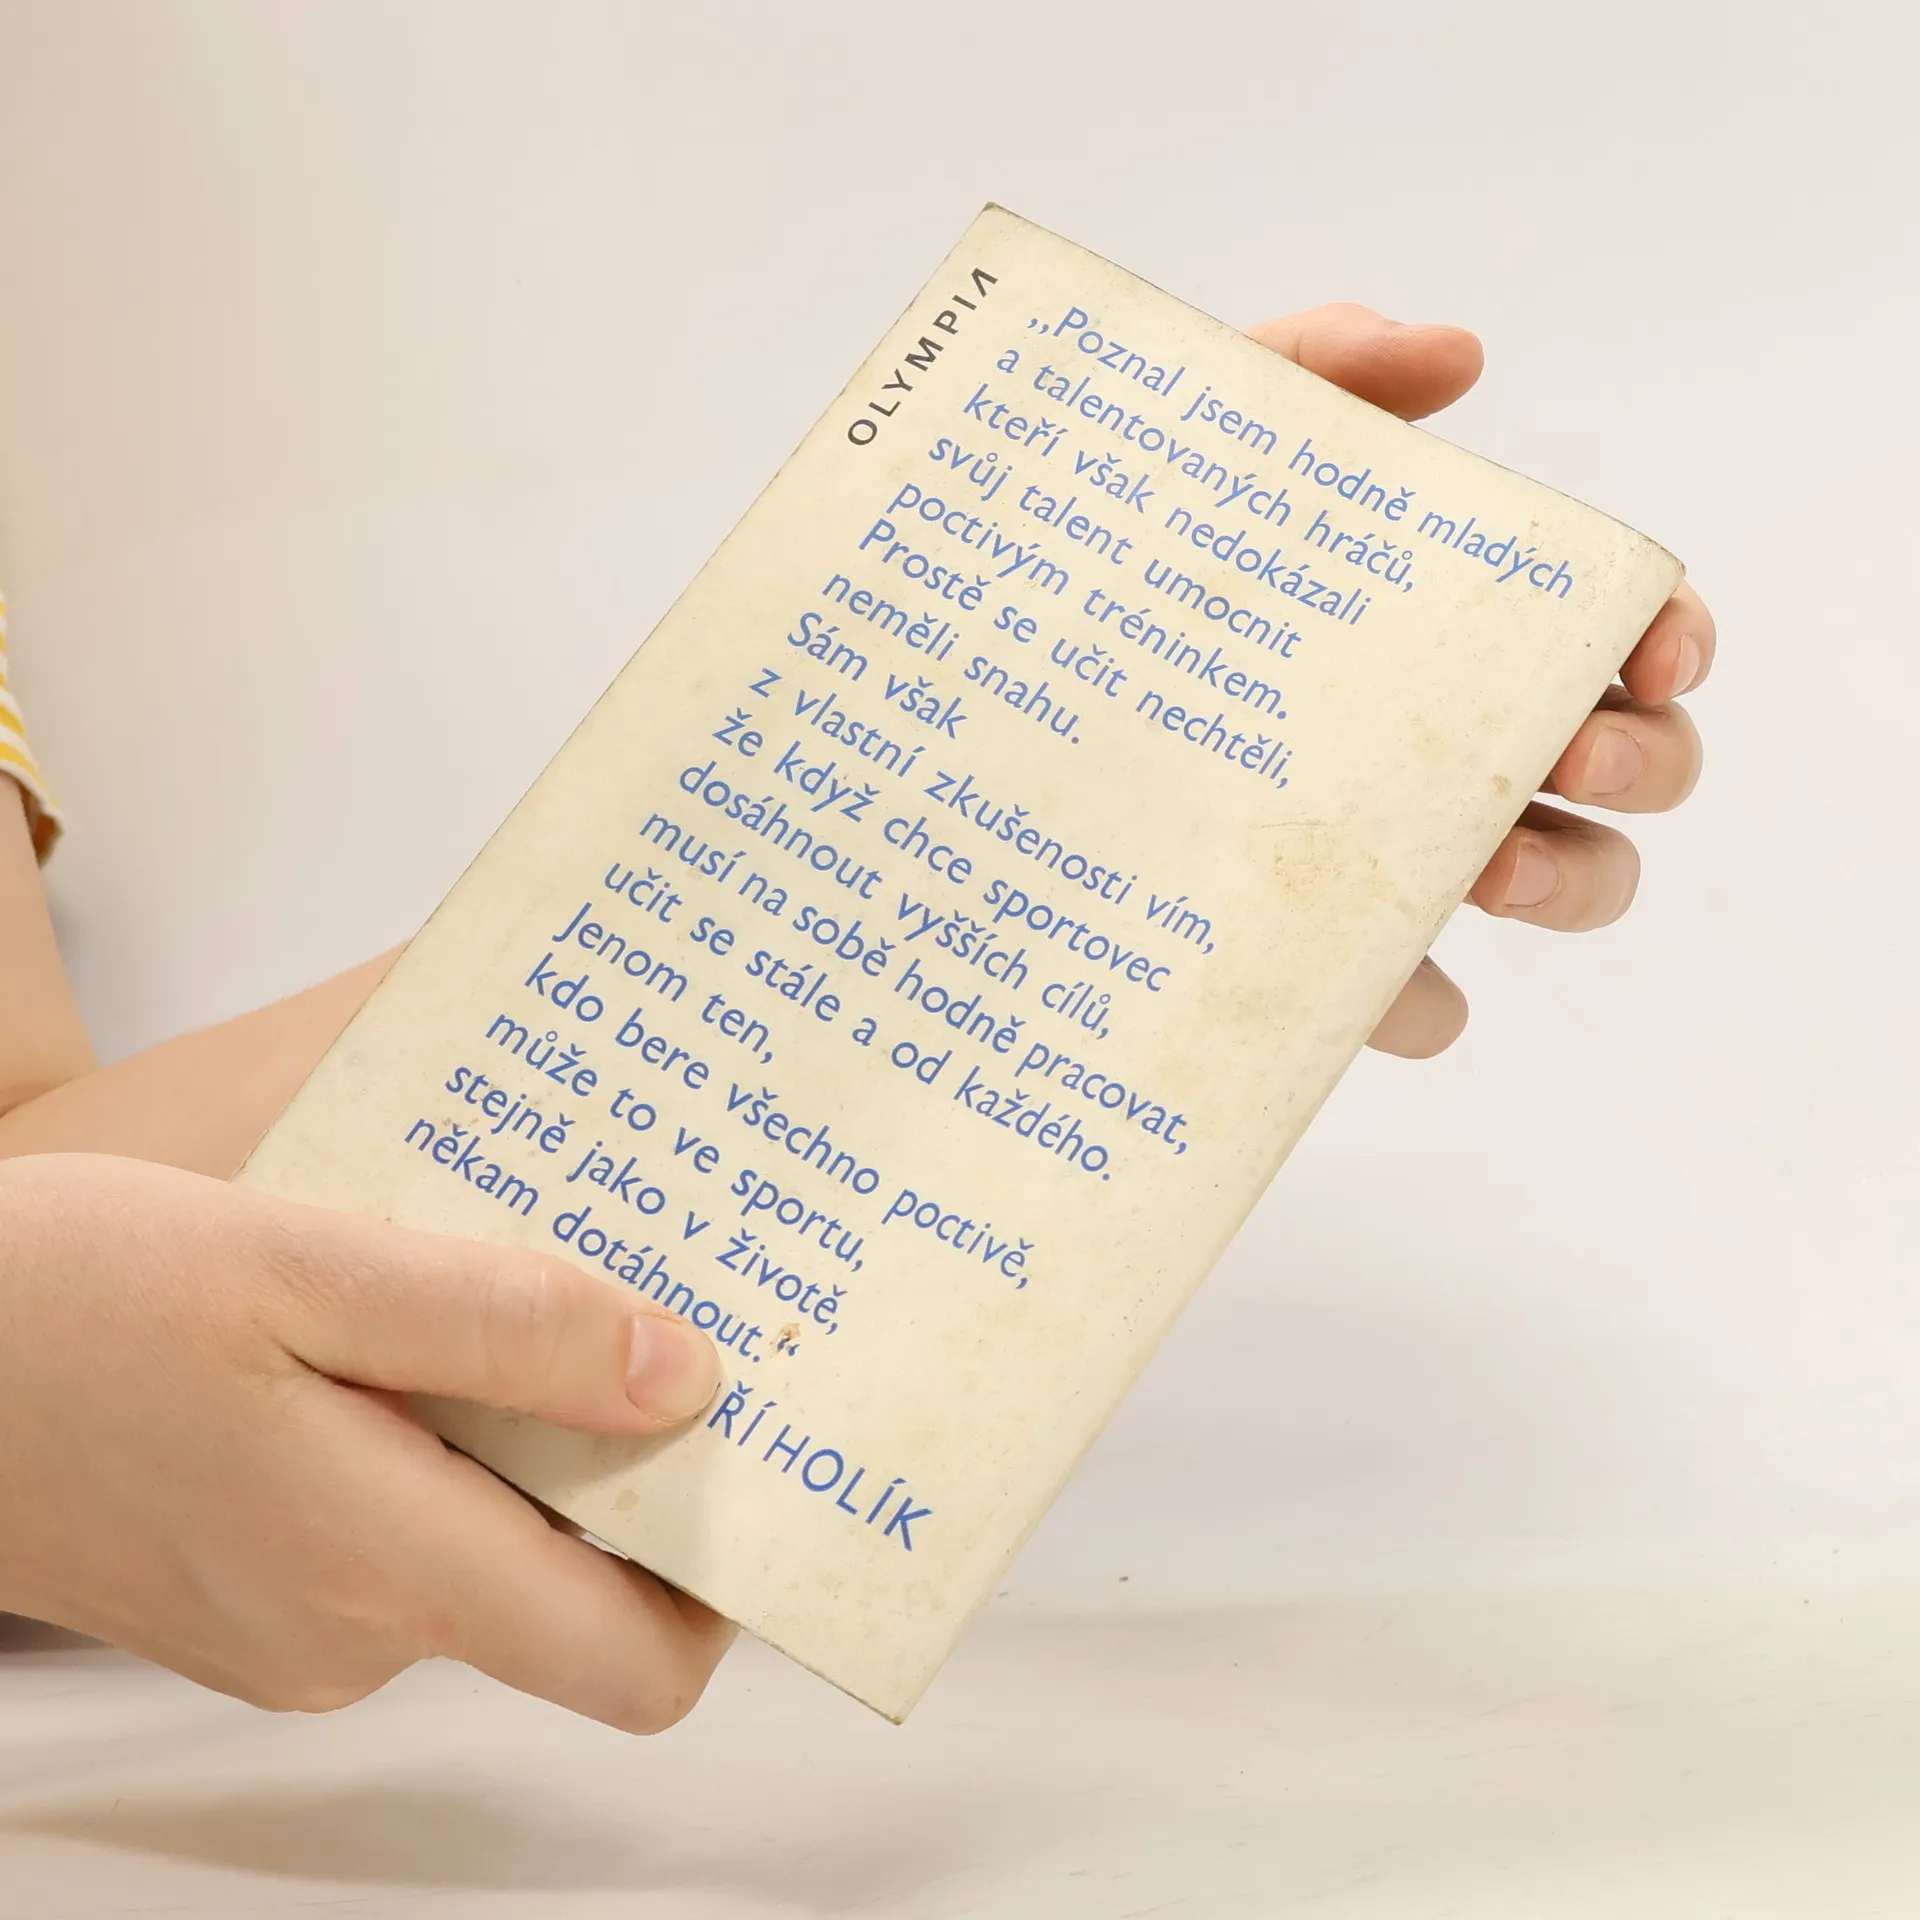 OLYMPIA
„Poznal jsem hodně mladých
a talentovaných hráčů,
kteří však nedokázali
svůj talent umocnit
poctivým tréninkem.
Prostě se učit nechtěli,
neměli snahu.
Sám však
z vlastní zkušenosti vím,
že když chce sportovec
dosáhnout vyšších cílů,
musí na sobě hodně pracovat,
učit se stále a od každého.
Jenom ten,
kdo bere všechno poctivě,
může to ve sportu,
stejně jako v životě,
někam dotáhnout.“
HOLÍK